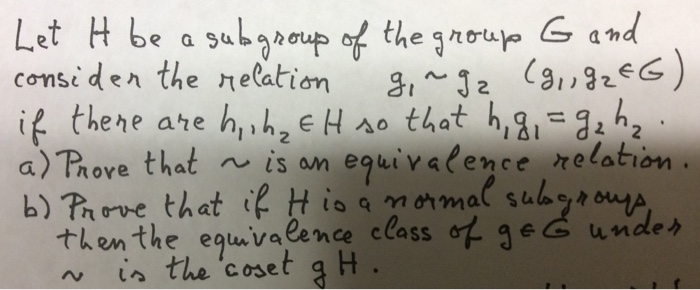 Let H be a subgroup of the group G and
consider the relation g₁ ~ g₂ (g₁, g₂ ∈ G)
if there are h₁, h₂ ∈ H so that h₁g₁ = g₂h₂.
a) Prove that ~ is an equivalence relation.
b) Prove that if H is a normal subgroup,
then the equivalence class of g ∈ G under
~ is the coset gH.